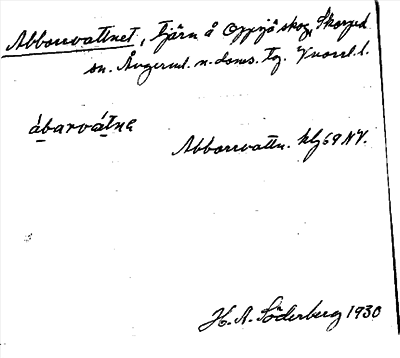 Abborrvattnet, tjärn å Oppsjö skog, Skorped
sn. Ångerml. n. doms. tg. Vnorrl. l.
ábarvátnɐ
Abborrvattn. klj 69 NV.
H. A. Söderberg 1930